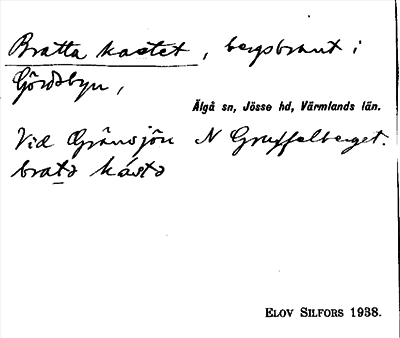 Bratta kastet, bergsbrant i
Gördsbyn,
Älgå sn, Jösse hd, Värmlands län.
Vid Gränsjön N Gruffelberget.
brata kásta
ELOV SILFORS 1938.